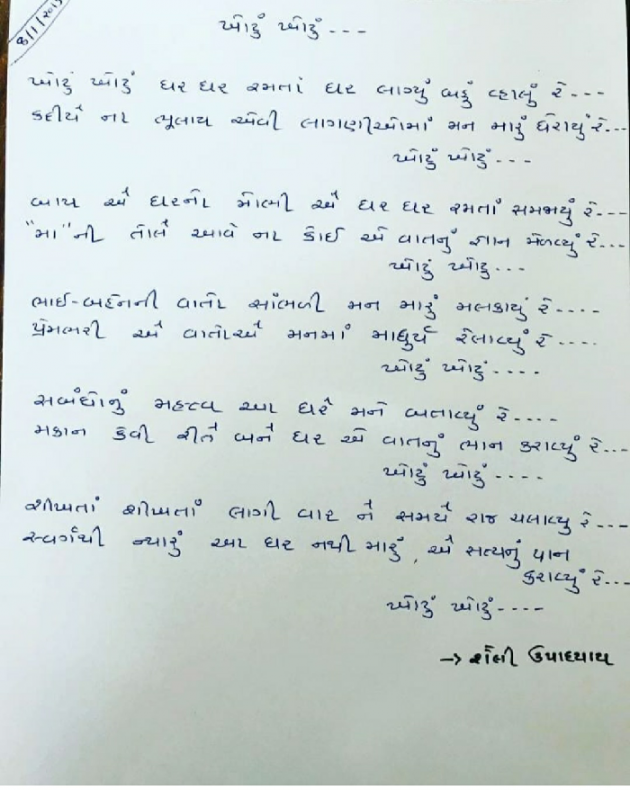 8/1/2019
ખોટું ખોટું---
ખોટું ખોટું ઘર ઘર રમતાં ઘર લાગ્યું બહું વ્હાલું રે---
કદીયે ના ભૂલાય એવી લાગણીઓમાં મન મારું ઘેરાયું રે---
ખોટું ખોટું---
બાપ એ ઘરનો મોભી એ ઘર ઘર રમતાં સમજાયું રે---
"મા"ની તોલે આવે ના કોઈ એ વાતનું જ્ઞાન મેળવ્યું રે---
ખોટું ખોટુ---
ભાઈ-બહેનની વાતો સાંભળી મન મારું મલકાયું રે----
પ્રેમભરી એ વાતોએ મનમાં માધુર્ય રેલાવ્યું રે----
ખોટું ખોટું----
સબંધોનું મહત્વ આ ઘરે મને બતાવ્યું રે----
મકાન કેવી રીતે બને ઘર એ વાતનું ભાન કરાવ્યું રે---
ખોટું ખોટું----
શીખતાં શીખતાં લાગી વાર ને સમયે રાજ ચલાવ્યુ રે---
સ્વર્ગથી ન્યારું આ ઘર નથી મારું, એ સત્યનું પાન
કરાવ્યું રે---
ખોટું ખોટું----
→ શૈલી ઉપાધ્યાય